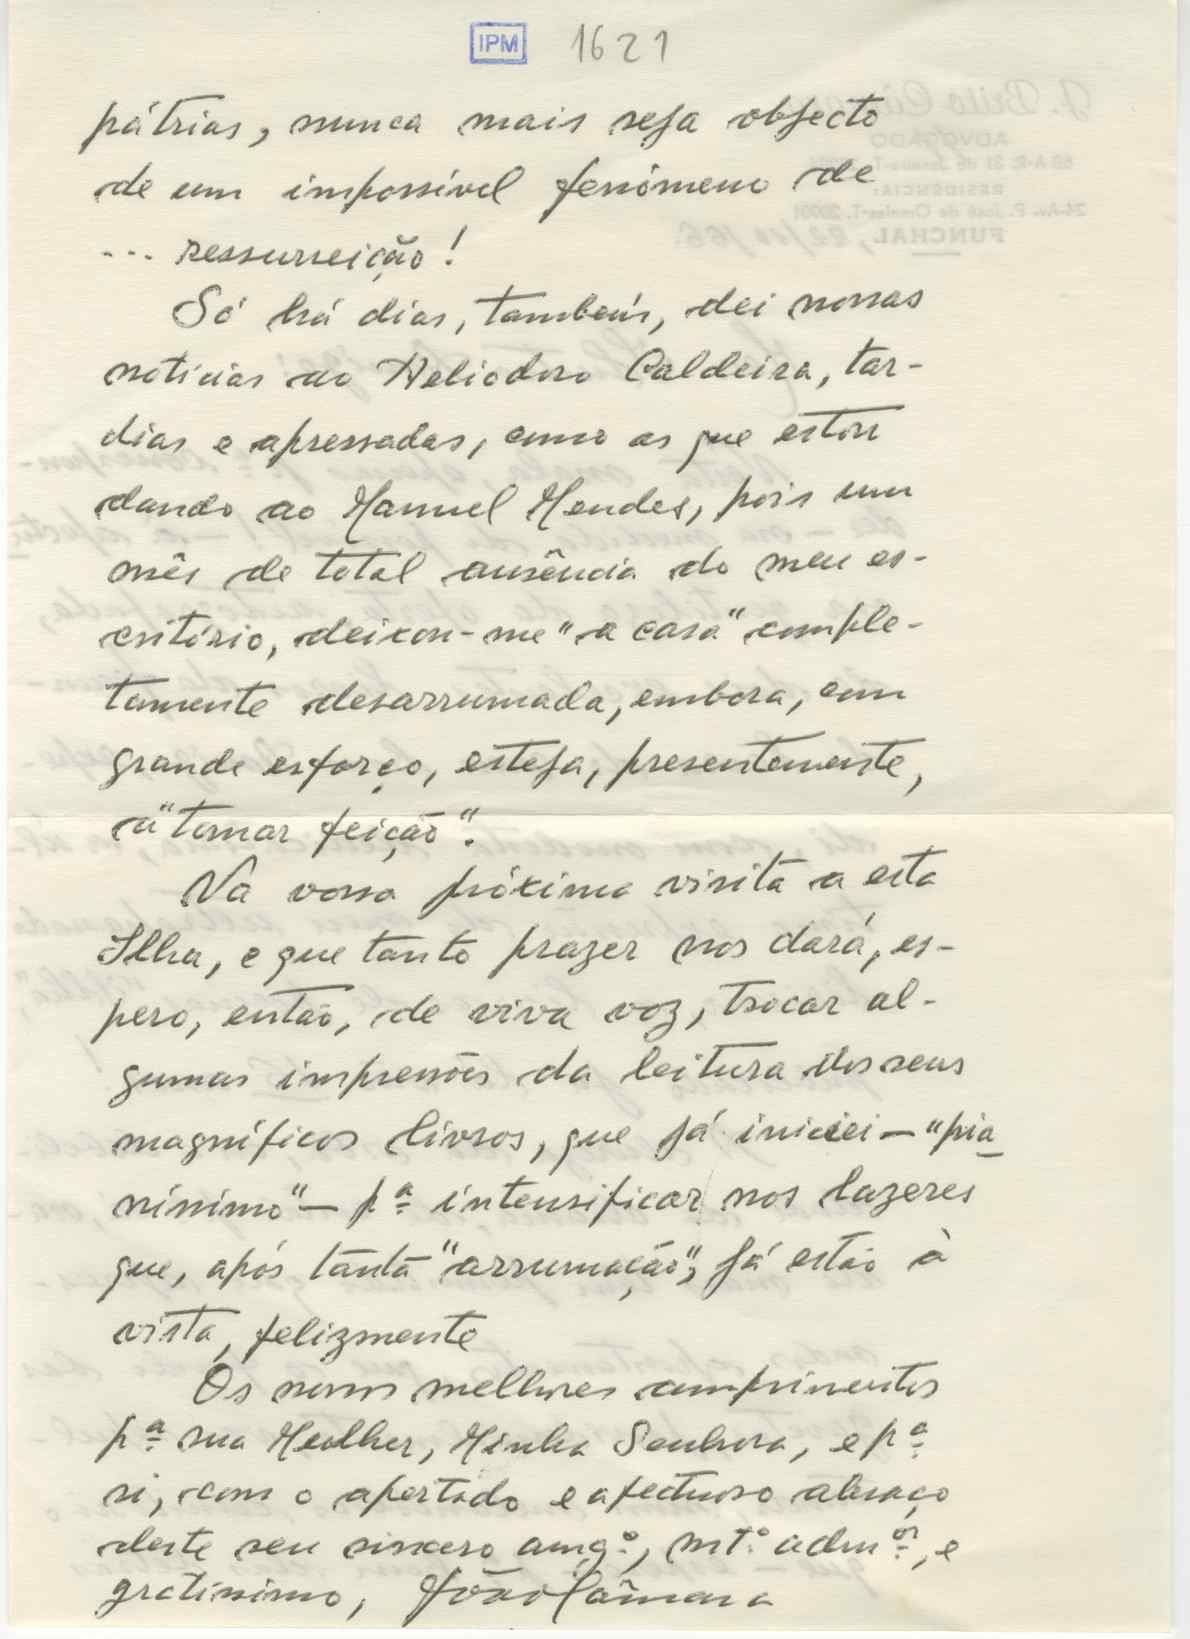 IPM 1621
pátrias, nunca mais seja objecto
de um impossível fenómeno de
... ressurreição!
Só há dias, também, dei nossas
notícias ao Heliodoro Caldeira, tar-
dias e apressadas, como as que estou
dando ao Manuel Mendes, pois um
mês de total ausência do meu es-
critório, deixou-me "a casa" comple-
tamente desarrumada, embora, com
grande esforço, esteja, presentemente,
a "tomar feição".
Na vossa próxima visita a esta
Ilha, e que tanto prazer nos dará, es-
pero, então, de viva voz, trocar al-
gumas impressões da leitura dos seus
magníficos livros, que já iniciei — "pia
níssimo" — pª intensificar nos lazeres
que, após tanta "arrumação", já estão à
vista, felizmente
Os nossos melhores cumprimentos
pª sua Mulher, Minha Senhora, e pª
si, com o apertado e afectuoso abraço
deste seu sincero amgº, mtº admor, e
gratíssimo, João Câmara
J. Brito Câmara
ADVOGADO
RESIDÊNCIA:
FUNCHAL